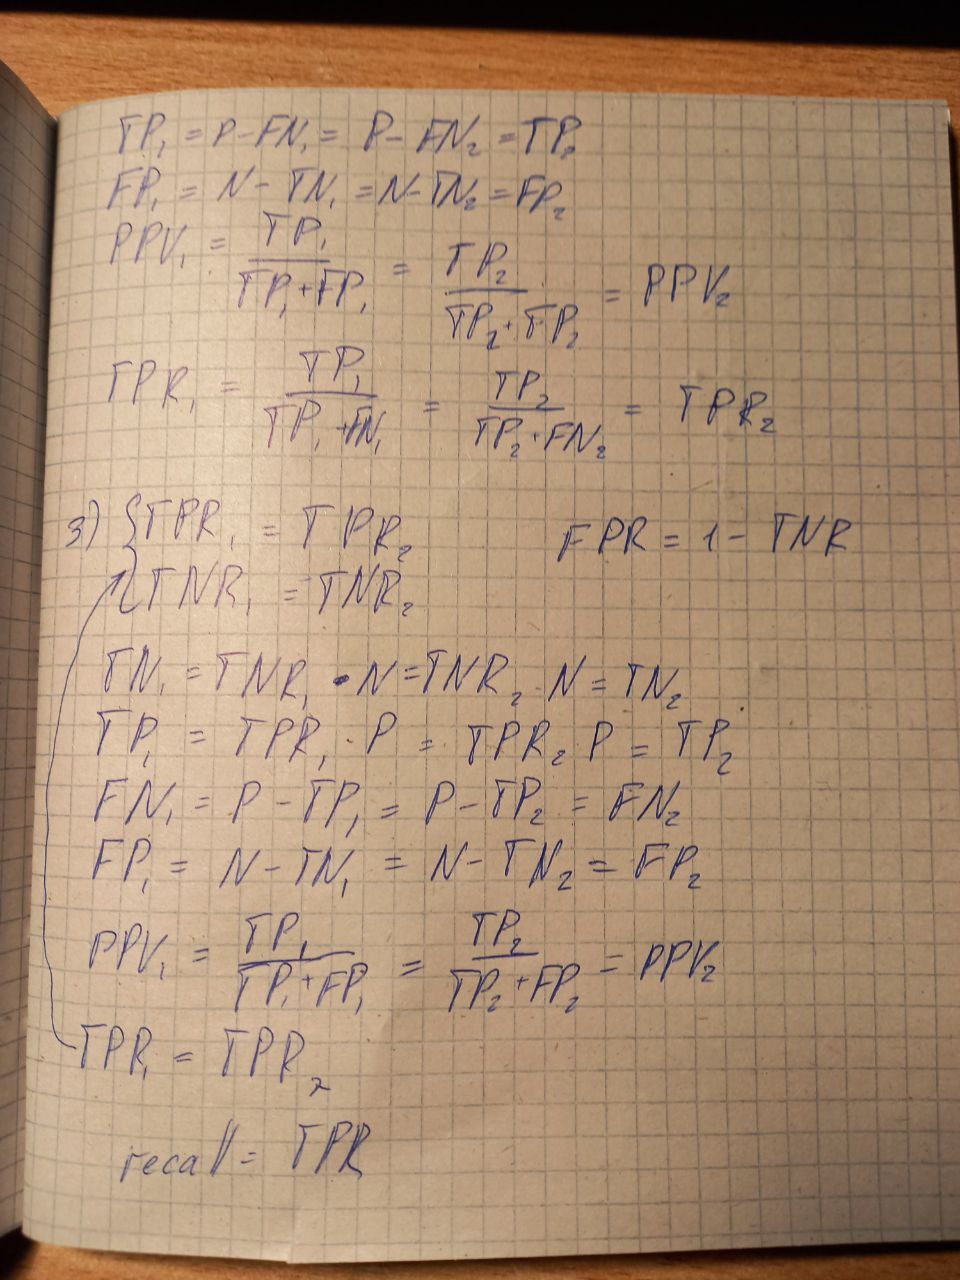 TP₁ = P - FN₁ = P - FN₂ = TP₂
FP₁ = N - TN₁ = N - TN₂ = FP₂
PPV₁ = TP₁ / (TP₁ + FP₁) = TP₂ / (TP₂ + FP₂) = PPV₂
TPR₁ = TP₁ / (TP₁ + FN₁) = TP₂ / (TP₂ + FN₂) = TPR₂
3) { TPR₁ = TPR₂ FPR = 1 - TNR
TNR₁ = TNR₂
TN₁ = TNR₁ · N = TNR₂ · N = TN₂
TP₁ = TPR₁ · P = TPR₂ · P = TP₂
FN₁ = P - TP₁ = P - TP₂ = FN₂
FP₁ = N - TN₁ = N - TN₂ = FP₂
PPV₁ = TP₁ / (TP₁ + FP₁) = TP₂ / (TP₂ + FP₂) = PPV₂
TPR₁ = TPR₂
recall = TPR